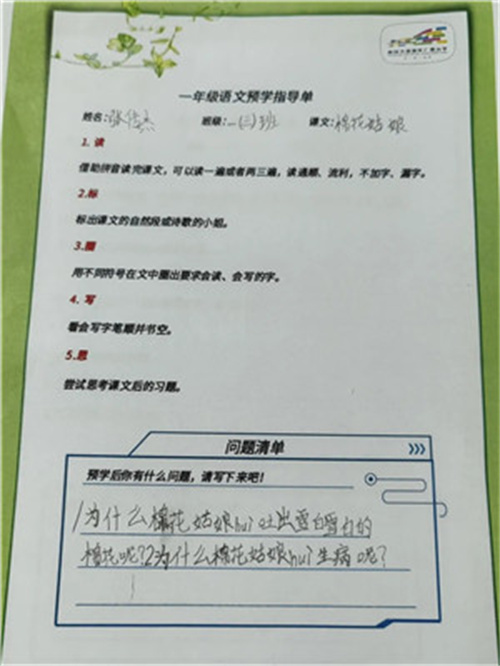 一年级语文预学指导单
姓名:张佳杰 班级:一(三)班 课文:棉花姑娘
1. 读
借助拼音读完课文，可以读一遍或者两三遍，读通顺、流利，不加字、漏字。
2.标
标出课文的自然段或诗歌的小姐。
3.圈
用不同符号在文中圈出要求会读、会写的字。
4. 写
看会写字笔顺并书空。
5.思
尝试思考课文后的习题。
问题清单
预学后你有什么问题，请写下来吧!
1为什么棉花姑娘huì吐出雪白雪白的
棉花呢?2为什么棉花姑娘huì生病呢?